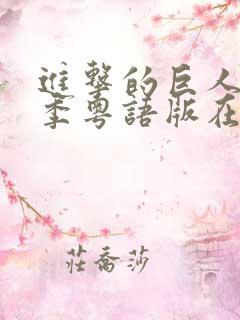 進擊的巨人
季粵語版在
莊喬莎